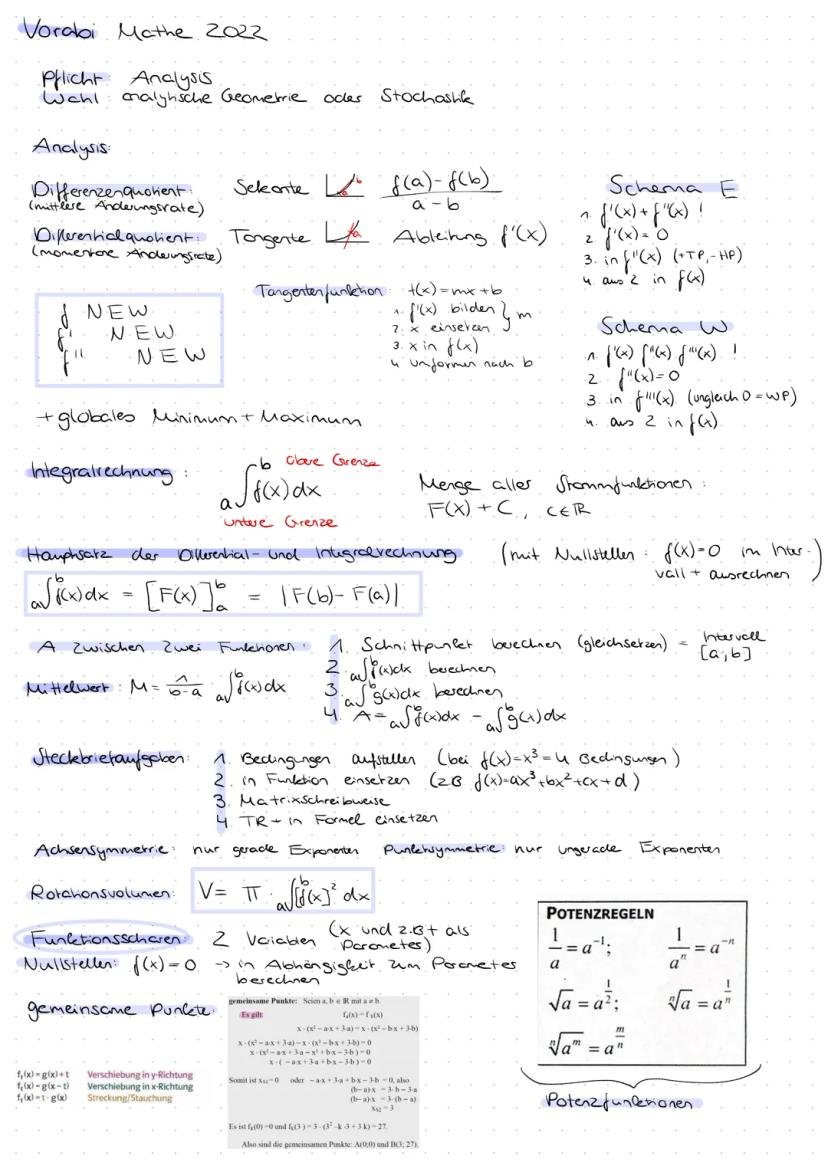 Vorabi Mathe 2022
Pflicht: Analysis
Wahl: analytische Geometrie oder Stochastik
Analysis:
Differenzenquotient: Sekante a b f(a)-f(b) / a-b
(mittlere Änderungsrate)
Differentialquotient: Tangente a Ableitung f'(x)
(momentane Änderungsrate)
Schema E
1. f'(x) + f''(x) !
2. f'(x) = 0
3. in f''(x) (+TP, -HP)
4. aus 2 in f(x)
f NEW
f' NEW
f'' NEW
Tangentenfunktion: t(x) = mx + b
1. f'(x) bilden } m
2. x einsetzen
3. x in f(x)
4. umformen nach b
Schema W
1. f'(x) f''(x) f'''(x) !
2. f''(x) = 0
3. in f'''(x) (ungleich 0 = WP)
4. aus 2 in f(x)
+ globales Minimum + Maximum
Integralrechnung: a∫b f(x) dx
obere Grenze
untere Grenze
Menge aller Stammfunktionen:
F(x) + C, c∈ℝ
Hauptsatz der Differential- und Integralrechnung
(mit Nullstellen: f(x)=0 im Inter-
vall + ausrechnen)
a∫b f(x) dx = [F(x)]ba = |F(b) - F(a)|
A zwischen zwei Funktionen:
1. Schnittpunkt berechnen (gleichsetzen) = Intervall [a;b]
2. a∫b f(x)dx berechnen
3. a∫b g(x)dx berechnen
4. A = a∫b f(x)dx - a∫b g(x)dx
Mittelwert: M = 1/b-a · a∫b f(x) dx
Steckbriefaufgaben:
1. Bedingungen aufstellen (bei f(x)=x³ = 4 Bedingungen)
2. in Funktion einsetzen (zB f(x)=ax³+bx²+cx+d)
3. Matrixschreibweise
4. TR → in Formel einsetzen
Achsensymmetrie: nur gerade Exponenten Punktsymmetrie: nur ungerade Exponenten
Rotationsvolumen: V = π · a∫b [f(x)]² dx
Funktionsscharen: 2 Variablen (x und z.B t als
Parameter)
Nullstellen: f(x) = 0 → in Abhängigkeit zum Parameter
berechnen
gemeinsame Punkte:
gemeinsame Punkte: Seien a, b ∈ ℝ mit a ≠ b.
Es gilt: fa(x) = fb(x)
x · (x² − a·x + 3·a) = x · (x² − b·x + 3·b)
x · (x² − a·x + 3·a) − x · (x² − b·x + 3·b) = 0
x · (x² − a·x + 3·a − x² + b·x − 3·b) = 0
x · ( − a·x + 3·a + b·x − 3·b) = 0
Somit ist xS1 = 0 oder − a·x + 3·a + b·x − 3·b = 0, also
(b− a)·x = 3·b − 3·a
(b− a)·x = 3· (b − a)
xS2 = 3
Es ist fk(0) = 0 und fk(3) = 3 · (3² − k · 3 + 3 k) = 27.
Also sind die gemeinsamen Punkte: A(0;0) und B(3; 27).
ft(x) = g(x) + t Verschiebung in y-Richtung
ft(x) = g(x − t) Verschiebung in x-Richtung
ft(x) = t · g(x) Streckung/Stauchung
POTENZREGELN
1/a = a⁻¹; 1/aⁿ = a⁻ⁿ
√a = a^(1/2); ⁿ√a = a^(1/n)
ⁿ√aᵐ = a^(m/n)
Potenzfunktionen